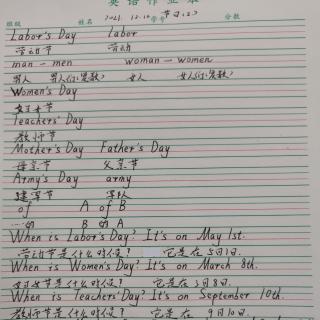 英语作业本
班级 姓名 学号 分数
2021. 12.10 节日(2)
Labor's Day labor
劳动节 劳动
man — men woman — women
男人 男人们(复数) 女人 女人们(复数)
Women's Day
妇女节
Teachers' Day
教师节
Mother's Day Father's Day
母亲节 父亲节
Army's Day army
建军节 军队
of A of B
…的 B的A
When is Labor's Day? It's on May 1st.
劳动节是什么时候? 它是在5月1日.
When is Women's Day? It's on March 8th.
妇女节是什么时候? 它是在3月8日.
When is Teachers' Day? It's on September 10th.
教师节是什么时候? 它是在 9月10日.